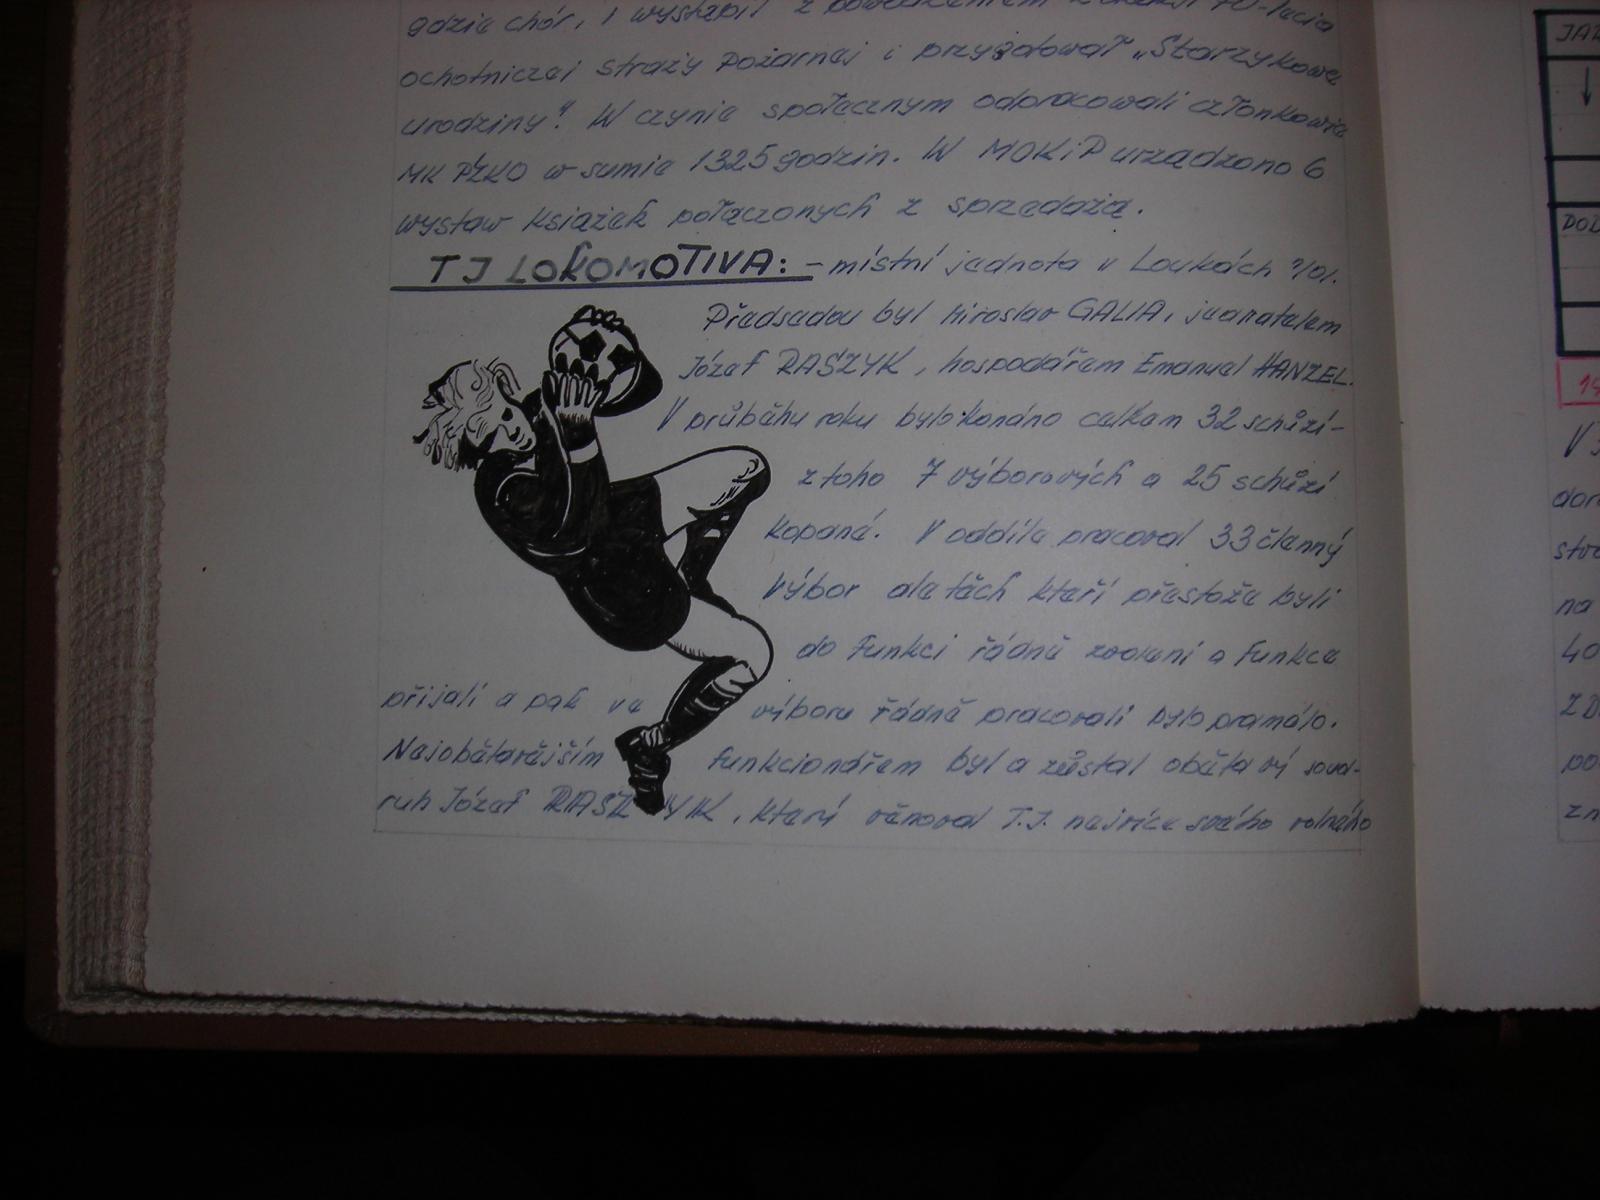 gdzie chór, i wystąpił z powodzeniem z okazji 70-lecia
ochotniczei straży Pożarnej i przygotował „Starzykowe
urodziny". W czynie społecznym odpracowali członkowie
MK PZKO w sumie 1325 godzin. W MOKiP urządzono 6
wystaw książek połączonych z sprzedażą.
TJ LOKOMOTIVA: - místní jednota v Loukách n/Ol.
Předsedou byl Miroslav GALIA, jednatelem
Józef RASZYK, hospodářem Emanuel HANZEL.
V průběhu roku bylo konáno celkem 32 schůzí-
z toho 7 výborových a 25 schůzí
kopané. V oddíle pracoval 33 členný
Výbor ale těch kteří přestože byli
do funkcí řádně zvoleni a funkce
přijali a pak ve výboru řádně pracovali bylo pramálo.
Nejobětavějším funkcionářem byl a zůstal obětavý soud-
ruh Józef RASZYK, který věnoval T.J. nejvíce svého volného
JAZ
DOD
19
V
na
40
ZD
po
zn